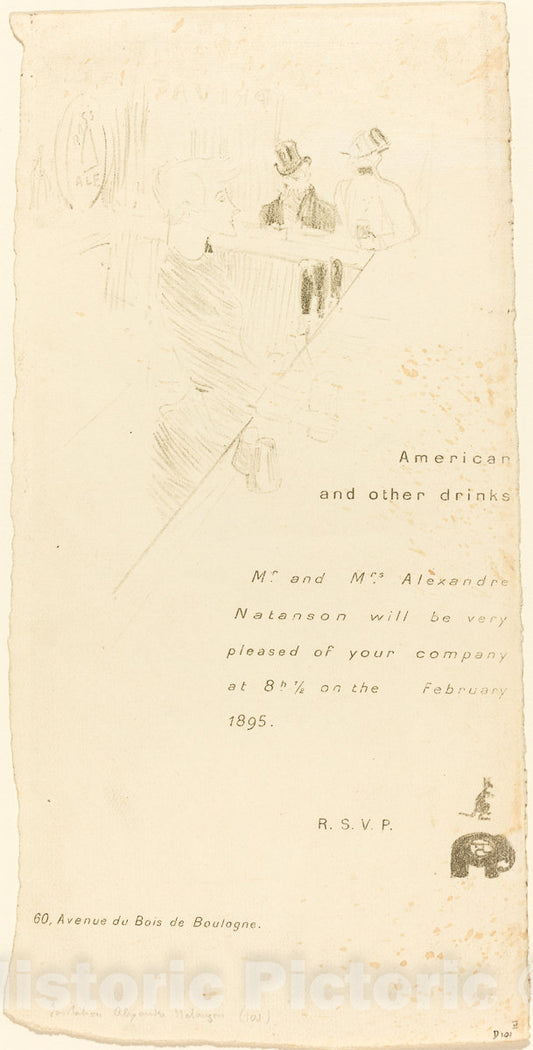 BASS
ALE
American
and other drinks
Mr and Mrs Alexandre
Natanson will be very
pleased of your company
at 8h ½ on the February
1895.
R. S. V. P.
60, Avenue du Bois de Boulogne.
Historic Pictoric
Invitation Alexandre Natanson (101)
II
D 101